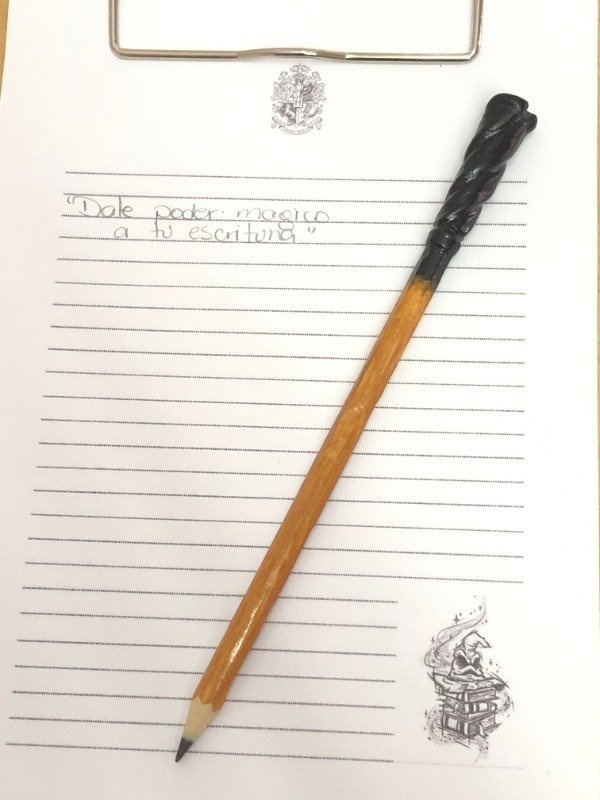 "Dale poder magico
a tu escritura"